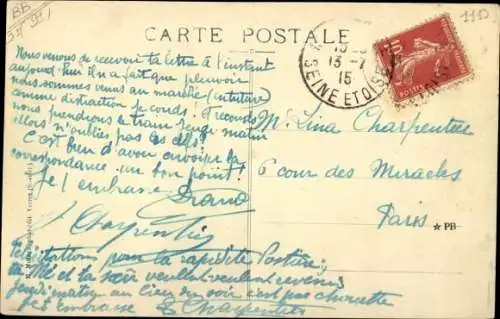 CARTE POSTALE
Nous venons de recevoir ta lettre à l'instant
aujourd'hui il n'a fait que pleuvoir
nous sommes venus au marché (intérieur)
comme distraction
nous prendrons le train jeudi matin
alors n'oublies pas les clefs.
C'est bien d'avoir envoyé la
correspondance un bon point!
Je t'embrasse
Charpentier
Félicitations pour ta rapidité Postière;
la Mé et la sœur veulent revenir
jeudi matin au lieu du soir c'est pas chouette
Je t'embrasse Charpentier
M. Lina Charpentier
6 cour des Miracles
Paris
★ PB
13-7
15
SEINE ET OISE
10
1113
BB